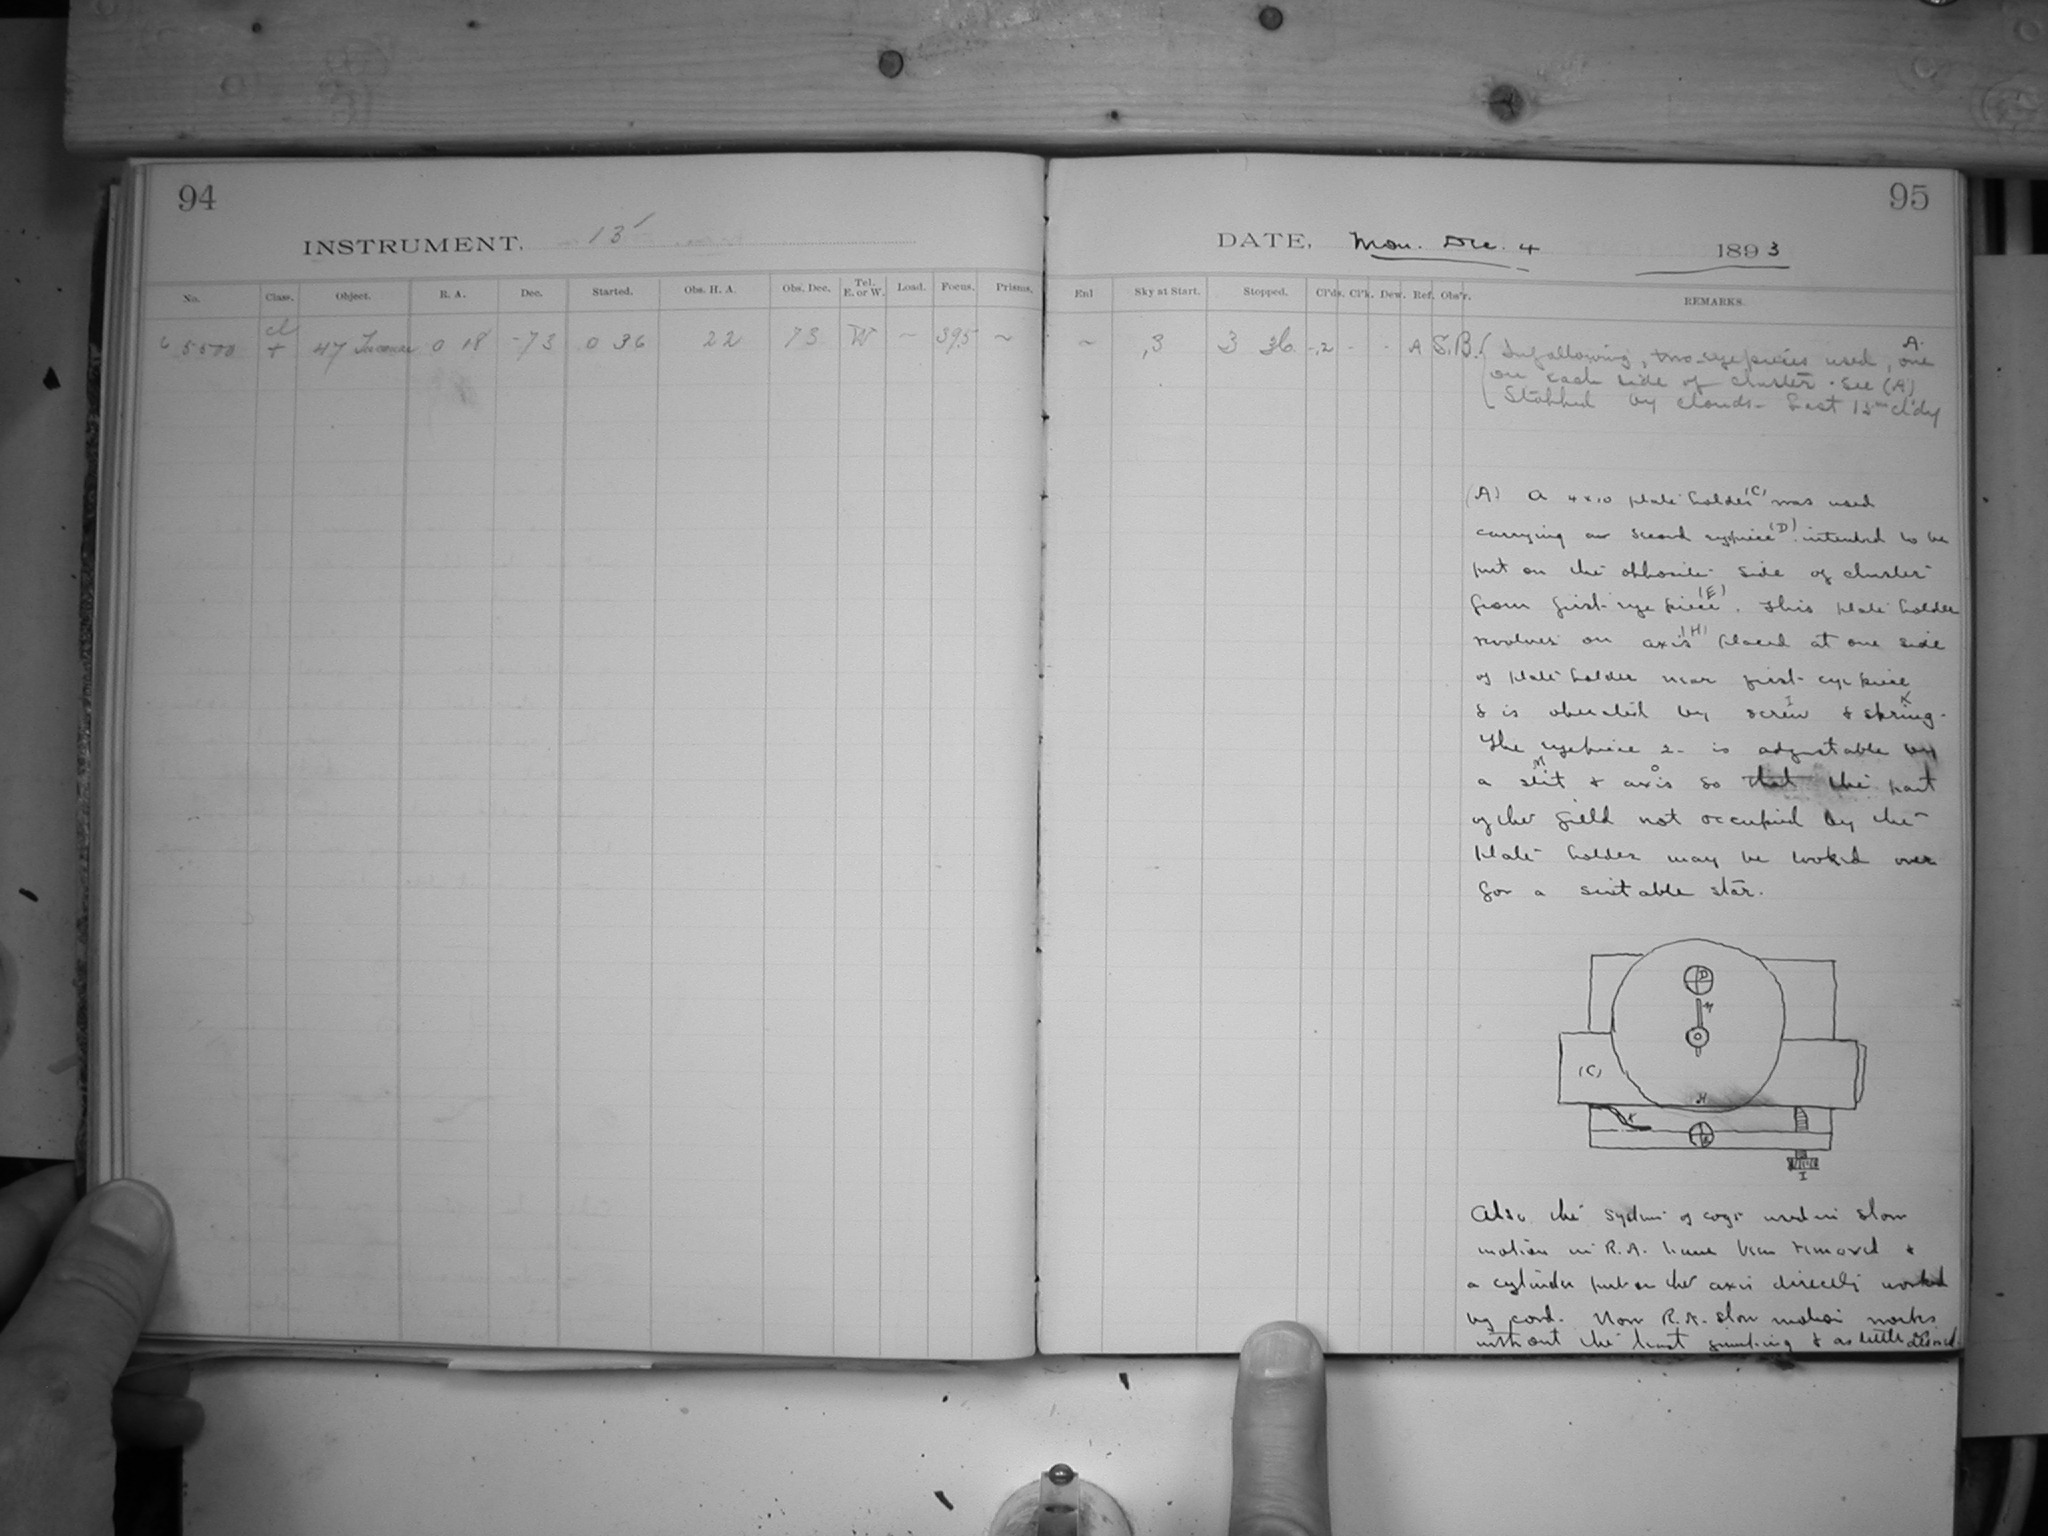 94
INSTRUMENT, 13"
No. Class. Object. R. A. Dec. Started. Obs. H. A. Obs. Dec. Tel. E. or W. Load. Focus. Prisms.
5500 cl + 47 Tucanae 0 18 -73 0 36 22 73 W ~ 39.5 ~
95
DATE, Mon. Dec. 4 1893
Enl Sky at Start. Stopped. Cl'ds. Cl'k. Dew. Ref. Obs'r. REMARKS.
~ ,3 3 36 -,2 - - A S.B. In following, two eyepieces used, one A.
on each side of cluster. See (A)
Stopped by clouds - Last 15m cl'dy
(A) A 4x10 plate holder (C) was used
carrying a second eyepiece (D) intended to be
put on the opposite side of cluster
from first eye piece (E). This plate holder
revolves on axis (H) placed at one side
of plate holder near first eye piece
& is operated by screw I & spring K.
The eyepiece 2 is adjustable by
a slit M & axis O so that the part
of the field not occupied by the
plate holder may be looked over
for a suitable star.
D
M
(C)
H
K
E
I
Also the system of cogs used in slow
motion in R.A. have been removed &
a cylinder put on the axis directly worked
by cord. Now R.A. slow motion works
without the least & as little as desired.